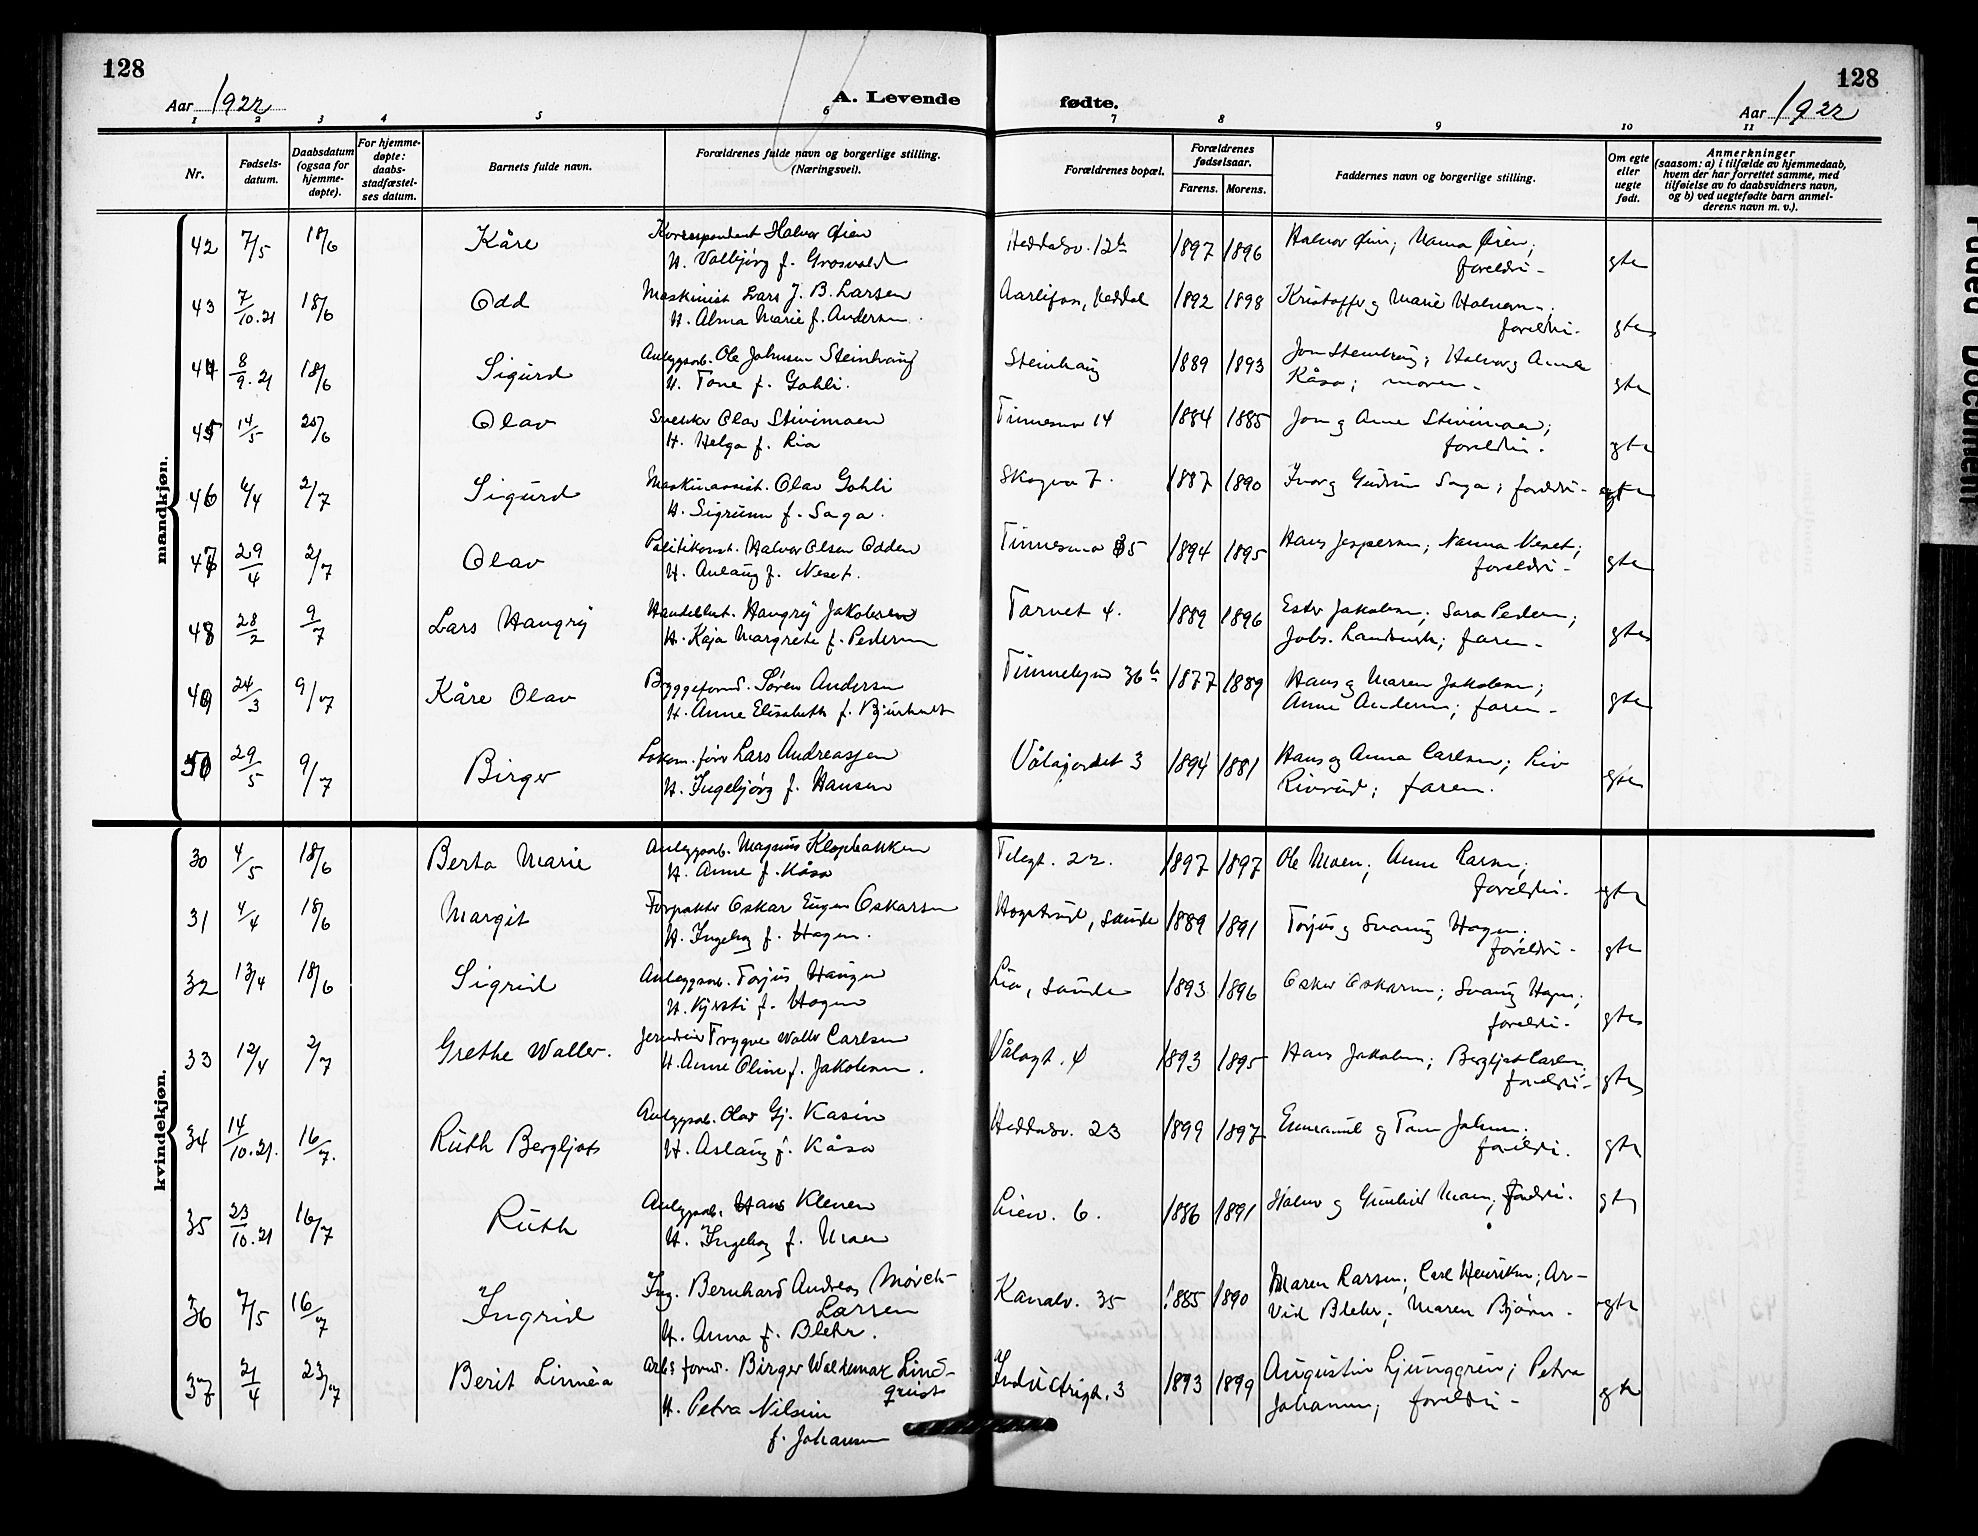 128
128
Aar 1922
A. Levende fødte.
Aar 1922
1 2 3 4 5 6 7 8 9 10 11
Nr.
Fødsels-
datum.
Daabsdatum
(ogsaa for
hjemme-
døpte).
For hjemme-
døpte:
daabs-
stadfæstel-
ses datum.
Barnets fulde navn.
Forældrenes fulde navn og borgerlige stilling.
(Næringsvei).
Forældrenes bopæl.
Forældrenes
fødselsaar.
Farens. Morens.
Faddernes navn og borgerlige stilling.
Om egte
eller
uegte
født.
Anmerkninger
(saasom: a) i tilfælde av hjemmedaab,
hvem der har forrettet samme, med
tilføielse av to daabsvidners navn,
og b) ved uegtefødte barn anmel-
derens navn m. v.).
mandkjøn.
42 7/5 18/6 Kåre Korrespondent Halvor Øien Heddalsv. 12b 1897 1896 Halvor Øien; Nanna Øien; gte
H. Valbjørg f. Grosvold foreldri -
43 7/10.21 18/6 Odd Maskinist Lars J. B. Larsen Aarlifoss, Heddal 1892 1898 Kristoffer og Marie Halvorsen; gte
H. Alma Marie f. Andersen. foreldri.
44 8/9.21 18/6 Sigurd Anleggsarb. Ole Johnsen Steinhaug Steinhaug 1889 1893 Jon Steinhaug; Halvor og Anne gte
H. Tone f. Gohli. Kåsa; moren -
45 14/5 25/6 Olav Snekker Olav Stivimoen Tinnesmo 14 1884 1885 Jon og Anne Stivimoen; gte
H. Helga f. Lia foreldri.
46 6/4 2/7 Sigurd Maskinassist. Olav Gohli Skogen 7. 1887 1890 Ivar og Gudrun Saga; foreldri - gte
H. Sigrunn f. Saga.
47 29/4 2/7 Olav Politikonst. Halvor Olsen Odden Tinnesmo 35 1894 1895 Hans Jespersen; Nanna Neset; gte
H. Aslaug f. Neset. foreldri -
48 28/2 9/7 Lars Haugrÿ Handelsbet. Haugrÿ Jakobsen Torvet 4. 1889 1896 Ester Jakobsen; Sara Pedersen; gte
H. Kaja Margrete f. Pedersen Johs. ; faren -
49 24/3 9/7 Kåre Olav Byggeform. Søren Andersen Tinnebyen 36b 1877 1889 Hans og Maren Jakobsen; gte
H. Anne Elisabeth f. Bjurholt Anne Andersen; faren -
50 29/5 9/7 Birger Lokom. fører Lars Andreassen Vålajordet 3 1894 1881 Hans og Anna Carlsen; Liv gte
H. Ingebjørg f. Hansen Rivrud; faren.
kvindekjøn.
30 4/5 18/6 Berta Marie Anleggsarb. Magnus Klopbakken Telegt. 22. 1897 1897 Ole Moen; Anne Larsen; gte
H. Anne f. Kåsa foreldri.
31 4/4 18/6 Margit Forpakter Oskar Eugen Oskarsen Hogstrud, Saude 1889 1891 Torjus og Svanug Hagen; gte
H. Ingebog f. Hagen. foreldri -
32 13/4 18/6 Sigrid Anleggsarb. Torjus Haugen Lia, Saude 1893 1896 Oskar Oskarsen; Svanug Hagen; gte
H. Kjersti f. Hagen foreldri -
33 12/4 2/7 Grethe Waller. Trygve Waller Carlsen Vålagt. 4 1893 1895 Hans Jakobsen; Bergljot Carlsen; gte
H. Anne Oline f. Jakobsen. foreldri -
34 14/10.21. 16/7. Ruth Bergljots Anleggsarb. Olav Gj. Kasin Heddalsv. 23 1899 1897 Emmanuel og Tone Johnsen. gte
H. Aslaug f. Kåsa foreldri.
35 23/10.21 16/7 Ruth Anleggsarb. Hans Kleven Liev. 6. 1886 1891 Halvor og Gunhild Moen; foreldri. gte
H. Ingebog f. Moen
36 7/5 16/7 Ingrid Ing. Bernhard Andreas Mørch- Kanalv. 35 1885 1890 Maren Larsen; Carl Henriksen; Ar- gte
Larsen vid Blehr; Maren Bjørn -
H. Anna f. Blehr.
37 21/4 23/7 Berit Linnéa Arbs form. Birger Waldemar Lind- Industrigt. 3 1893 1899 Augustin Ljunggren; Petra gte
quist Johansen; foreldri -
H. Petra Nilsine
f. Johansen
Faded Document